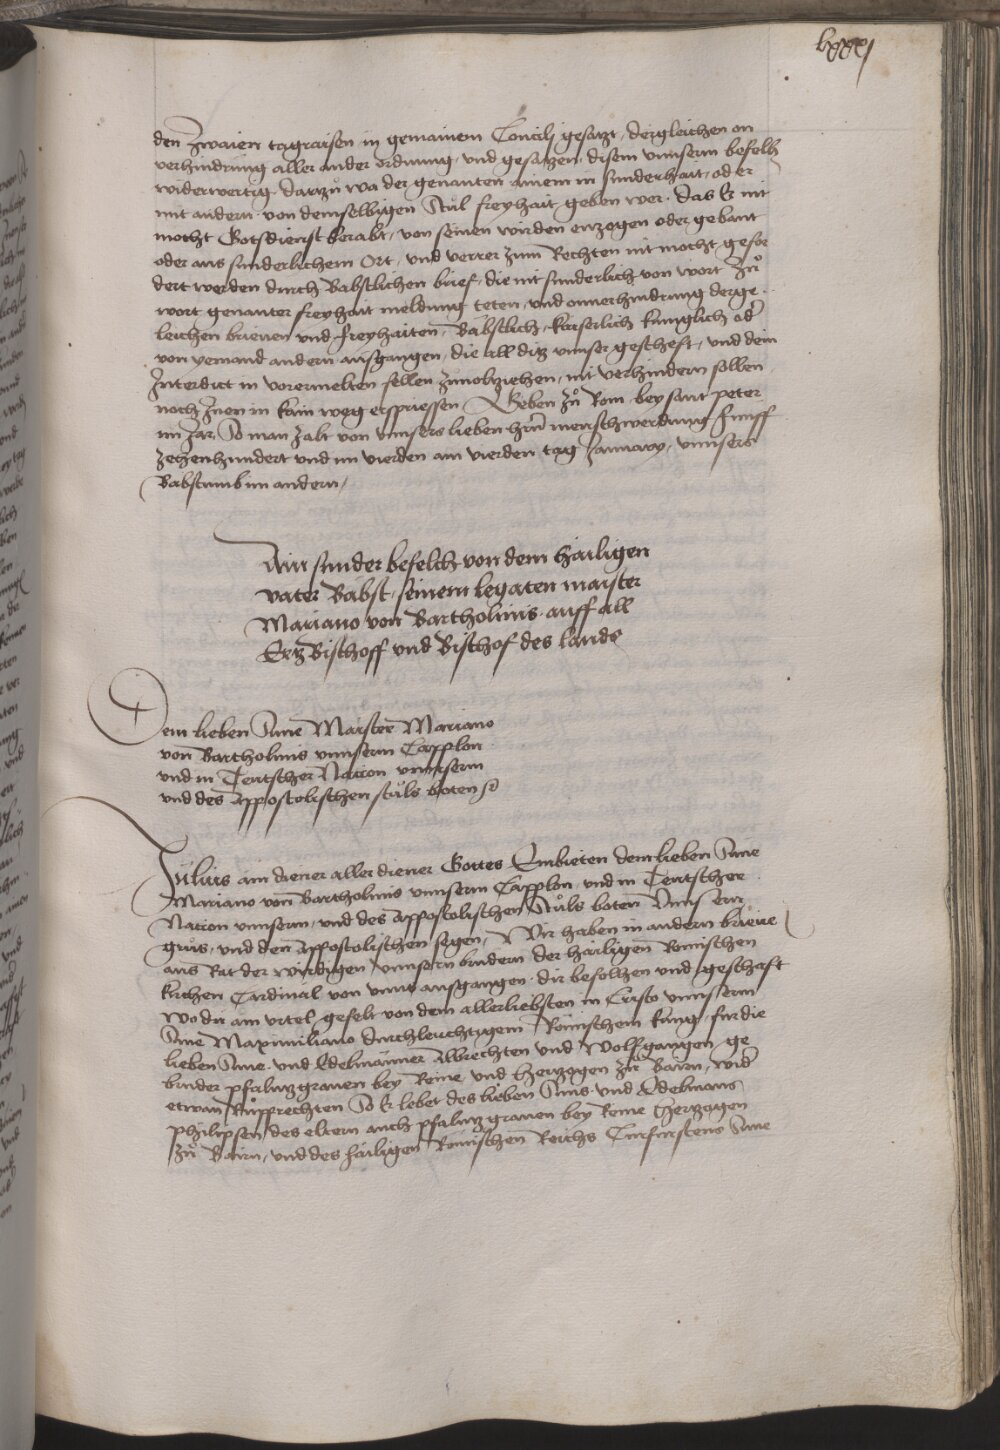 lxxxj
den Zwaien tagraisen in gemainem Concilj gesatzt, dergleichen on
verhindrung aller ander ordnung, und gesatzen, disem unnserm befelh
widerwertig, Darzu wa der genanten ainem in sunderhait, oder
mit andern, von demselbigen Stul freyhait geben wer, das Er nit
mocht Gotsdienst beraubt, von seinen wirden entzogen oder gebant
oder aus sunderlichem Ort, und verrer zum Rechten nit mocht gefor
dert werden durch Babstlichen brief, die nit sunderlich von wort zu
wort genanter freyhait meldung teten, und onverhindrung derge
leichen brieuen und freyhaiten, Babstlich, kaiserlich kuniglich oder
von yemand andern ausgangen, die all ditz unnser gescheft, und dem
Interdict in vorermelten fellen zuuolziehen, nit verhindern sollen
noch Inen in kain weg erspriessen Geben zu Rom bey sant peter
im Jar, So man zalt von unnsers lieben hern menschwerdung funff
zehenhundert und im vierden am vierden tag Januarij, unnsers
Babstumb im andern,
Ain sunder befelch von dem hailigen
vater Babst, seinem legaten maister
Mariano von Bartholinis, auff all
Ertz Bischoff und Bischof des lands
Dem lieben Sune Maister Mariano
von Bartholinis unnserm Capplon
und in Teutscher Nation unnserm
und des Appostolischen stuls boten
Julius ain diener aller diener Gottes Embieten dem lieben Sune
Mariano von Bartholinis unnserm Capplon, und in Teutscher
Nation unnserm, und des Appostolischen Stuls boten Unnsern
grus, und den Appostolischen segen, Wir haben in andern brieue
aus Rat der wirdigen unnsern brudern der hailigen Romischen
kirchen Cardinal von unns ausgangen, dir befolhen und geschaft
Wo du am urtel gefelt von dem allerliebsten in Cristo unnserm
Sune Maximiliano durchleuchtigem Römischem kunig, fur die
lieben Sune und Edelmanner Albrechten und Wolfgangen, ge
bruder pfaltzgrauen bey Reine, und hertzogen zu bairn, wider
etwan Rupprechten So Er lebet des lieben Suns und Edelmans
philipsen des eltern auch pfaltzgrauen bey Reine Hertzogen
zu Bairn, und des hailigen Römischen Reichs Curfurstens Sune